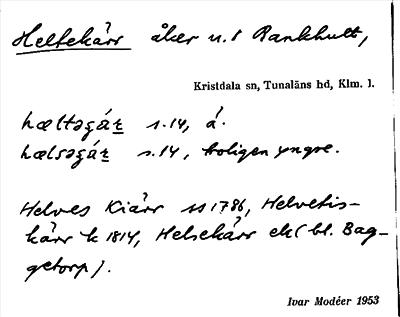 Heltekärr åker u. f Bankhult,
Kristdala sn, Tunaläns hd, Klm. l.
hæltəʒár s. 14, å.
hælsəʒár s. 14, troligen yngre.
Helves Kiärr ss 1786, Helvetis-
kärr k 1814, Helsekärr ek (bl. Bag-
getorp).
Ivar Modéer 1953